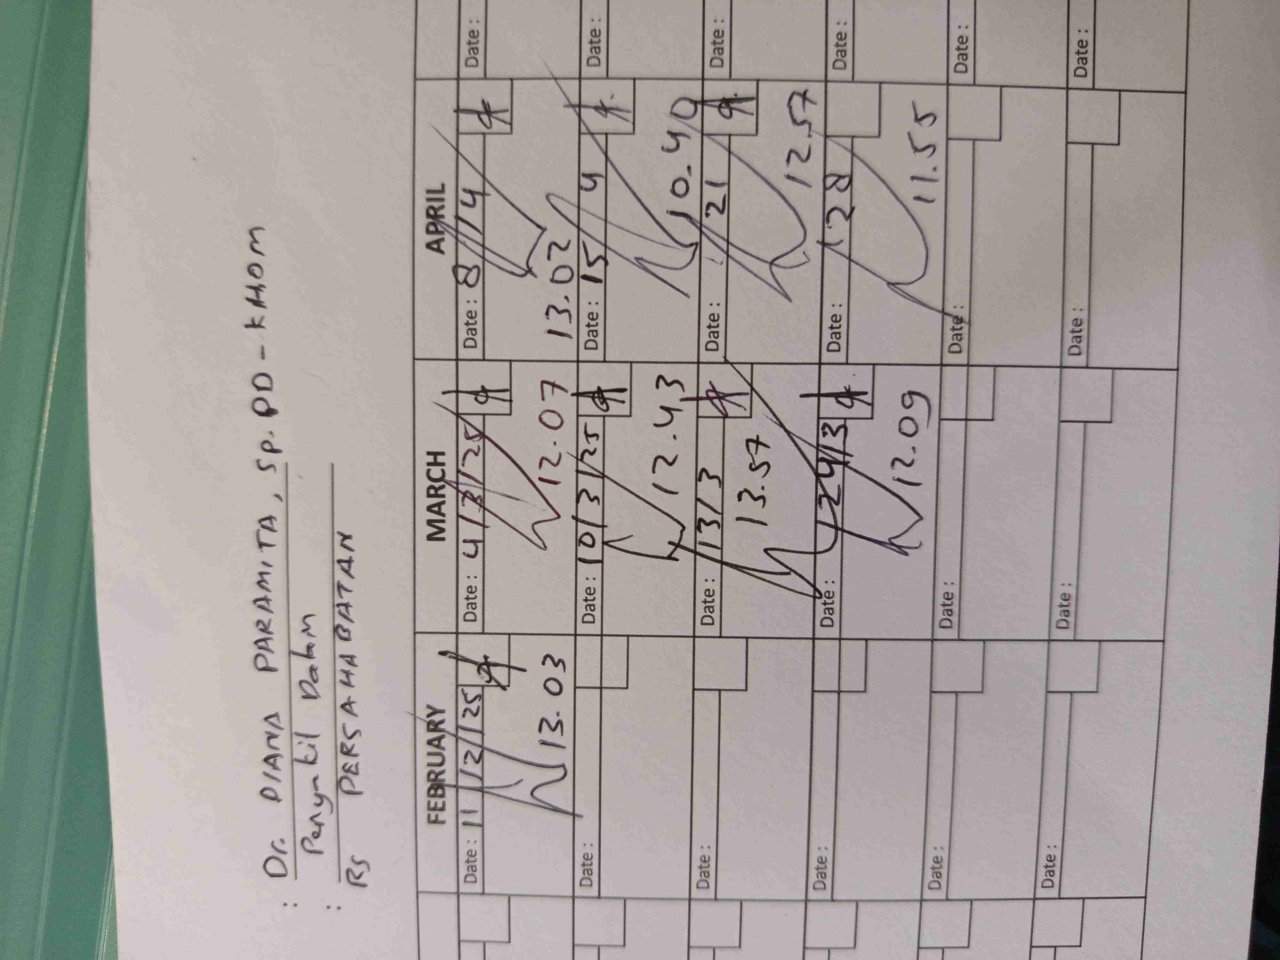 : Dr. DIANA PARAMITA, Sp.PD-KHOM
Penyakit Dalam
: RS PERSAHABATAN
FEBRUARY MARCH APRIL
Date : 11/2/25 Date : 4/3/25 Date : 8/4 Date :
13.03 12.07 13.02
Date : Date : 10/3/25 Date : 15 4 Date :
12.43 10.40
Date : Date : 13/3 Date : 21 Date :
13.57 12.57
Date : Date : 24/3 Date : 28 Date :
12.09 11.55
Date : Date : Date : Date :
Date : Date : Date : Date :